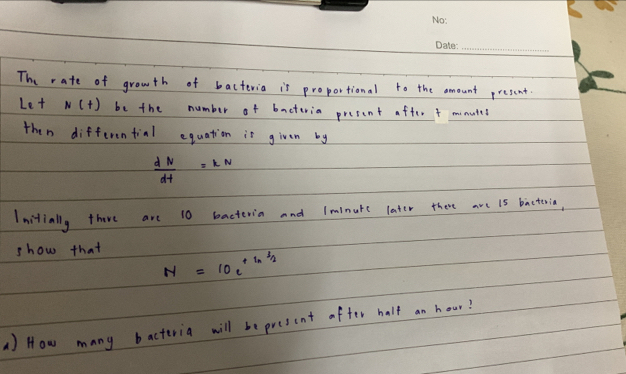 No:
Date:
The rate of growth of bacteria is proportional to the amount present.
Let N(t) be the number of bacteria present after t minutes
then differential equation is given by
dN/dt = kN
Initially there are 10 bacteria and 1 minute later there are 15 bacteria,
show that
N = 10 e^(t ln 3/2)
a) How many bacteria will be present after half an hour?